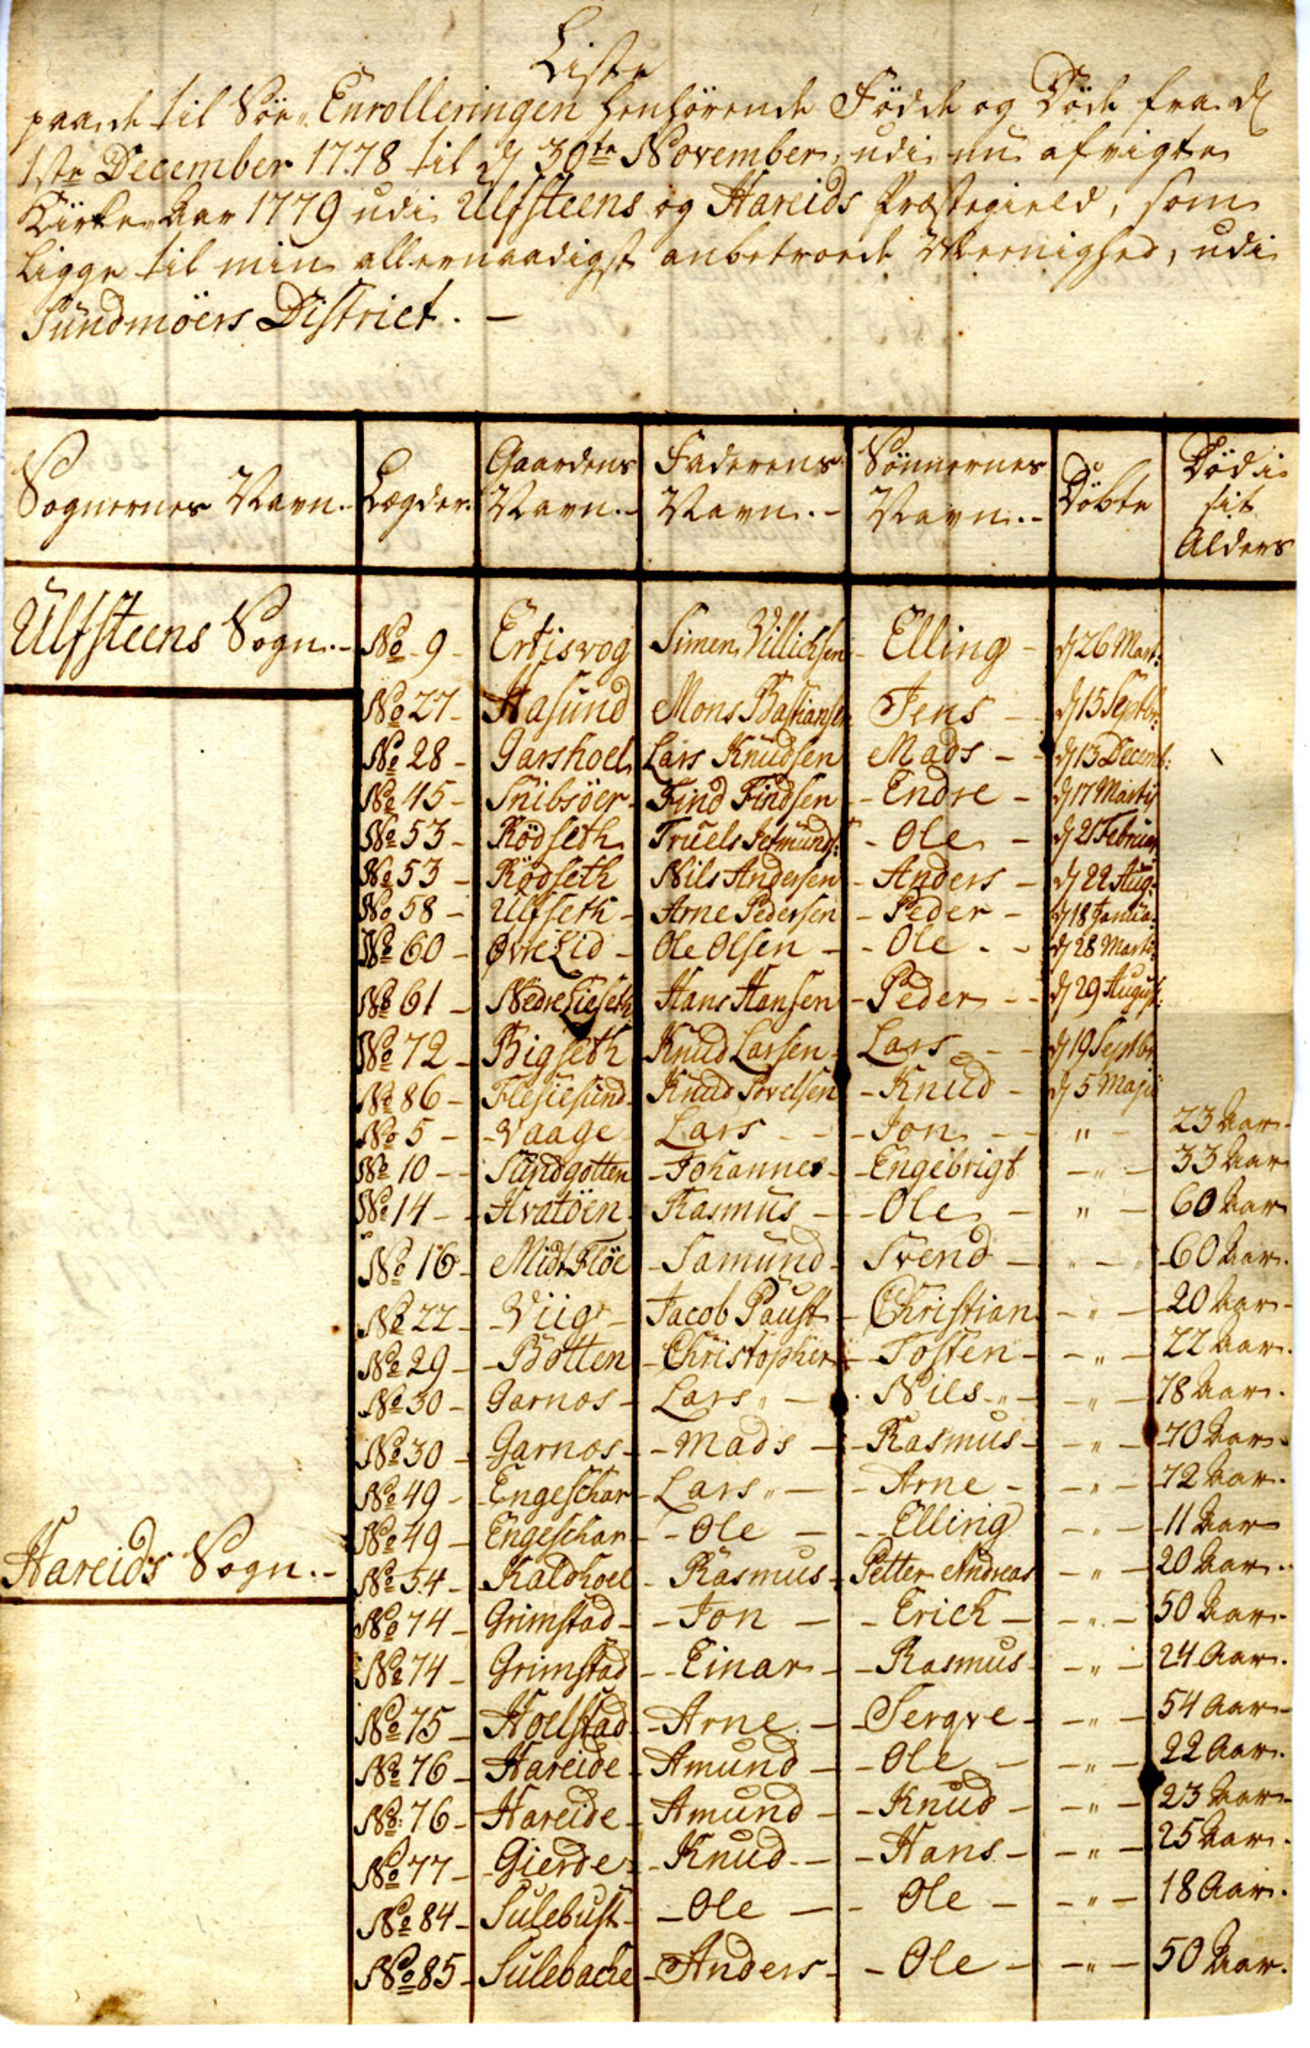 Liste
paa de til Söe Enrolleringen henhörende Födde og Döde fra d
1ste December 1778 til d 30te November, udi nu afvigte
Kirke Aar 1779 udi Ulfsteens og Hareids Præstegield, som
ligge til min allernaadigst anbetroede Værnighed, udi
Sundmöers District. -
Sognernes Navn. Lægder. Gaardens Navn. Faderens Navn. Sönnernes Navn. Döbte Död i sit Alders
Ulfsteens Sogn. No 9 Ertisvog Simen Villichsen Elling d 26 Mart:
No 27 Hasund Mons Bastiansen Jens d 15 Septbr:
No 28 Garshoel Lars Knudsen Mads d 13 Decemb:
No 45 Snibsöer Find Findsen Endre d 17 Martij
No 53 Rödseth Truels Jetmunds: Ole d 21 Februar
No 53 Rödseth Nils Andersen Anders d 22 Aug:
No 58 Ulfseth Arne Pedersen Peder d 18 Janua:
No 60 Øvre Lid Ole Olsen Ole d 28 Marti:
No 61 Nedre Lieseth Hans Hansen Peder d 29 August:
No 72 Bigseth Knud Larsen Lars d 19 Septbr
No 86 Flesiesund Knud Povelsen Knud d 5 Maji
No 5 Vaage Lars Jon " 23 Aar
No 10 Sundgotten Johannes Engebrigt " 33 Aar
No 14 Hvatöen Rasmus Ole " 60 Aar
No 16 Midt Flöe Samund Svend " 60 Aar.
No 22 Viig Jacob Paust Christian " 20 Aar
No 29 Botten Christopher Tosten " 22 Aar.
No 30 Garnos Lars " Nils " " 78 Aar.
No 30 Garnos Mads Rasmus " 70 Aar
No 49 Engeschar Lars " Arne " 72 Aar.
No 49 Engeschar Ole Elling " 11 Aar
Hareids Sogn. No 54 Kaldhoel Rasmus Petter Andreas " 20 Aar.
No 74 Grimstad Jon Erich " 50 Aar.
No 74 Grimstad Einar Rasmus " 24 Aar.
No 75 Hoelstad Arne Serqve " 54 Aar
No 76 Hareide Amund Ole " 22 Aar.
No 76 Hareide Amund Knud " 23 Aar
No 77 Gierde Knud Hans " 25 Aar.
No 84 Sulebust Ole Ole " 18 Aar.
No 85 Sulebache Anders Ole " 50 Aar.